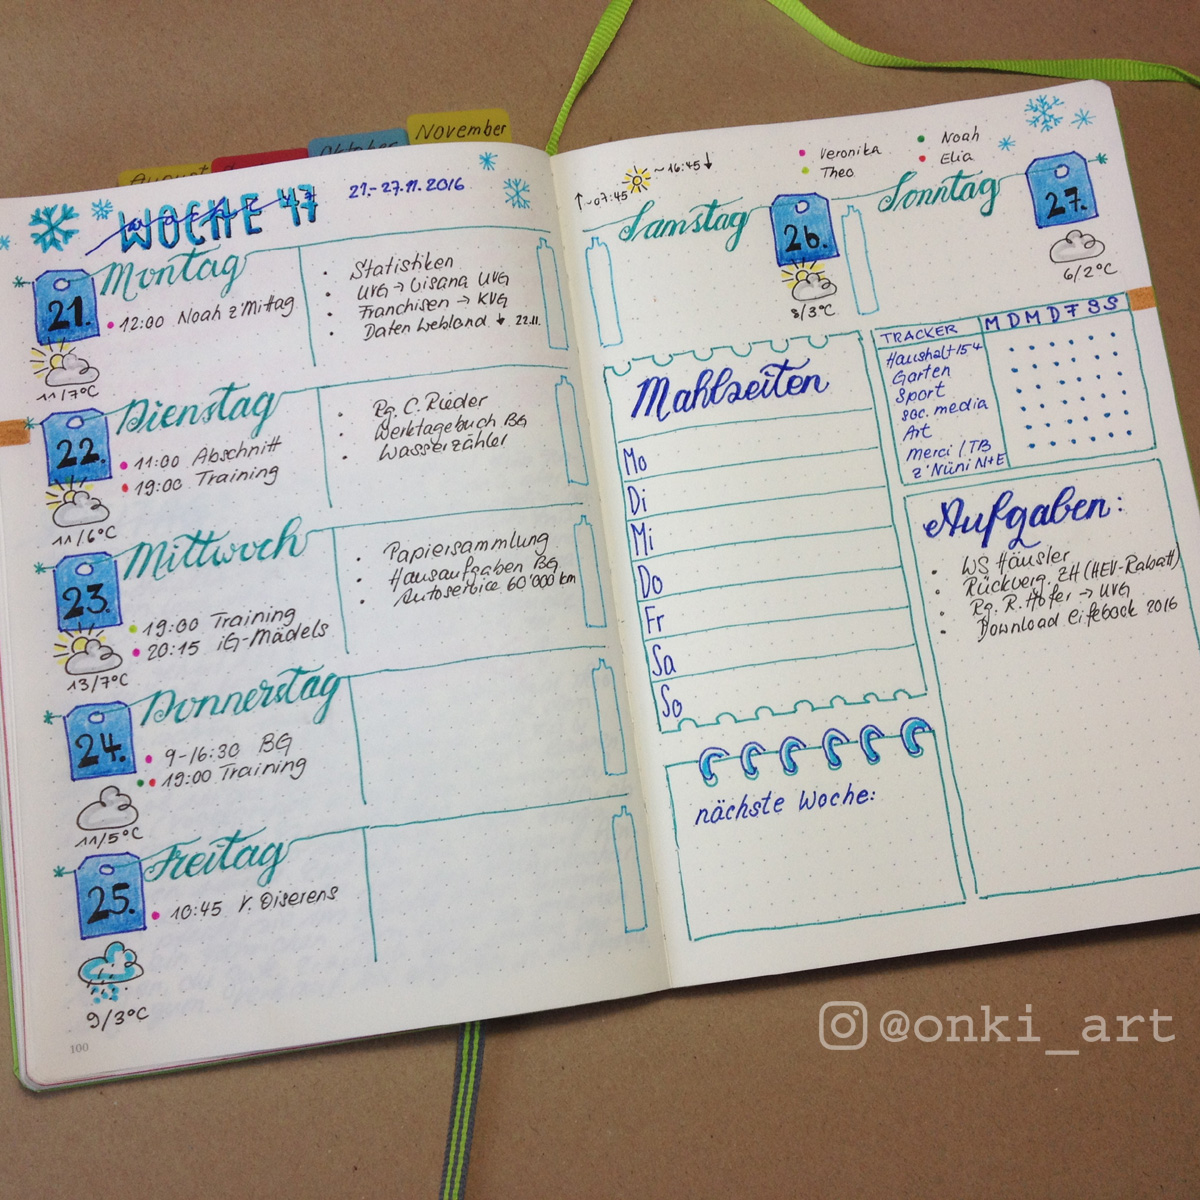 November
Oktober
August
WOCHE 47
21.-27.11.2016
Montag
21.
12:00 Noah z'Mittag
11/7°C
Statistiken
UVG → Visana UVG
Franchisen → KVG
Daten Webland ↓ 22.11.
Dienstag
22.
11:00 Abschnitt
19:00 Training
11/6°C
Rg. C. Rieder
Werktagebuch BG
Wasserzähler
Mittwoch
23.
19:00 Training
20:15 iG-Mädels
13/7°C
Papiersammlung
Hausaufgaben BG
Autoservice 60'000 km
Donnerstag
24.
9-16:30 BG
19:00 Training
11/5°C
Freitag
25.
10:45 V. Oiserens
9/3°C
100
↑~07:45
~16:45↓
Veronika
Theo
Noah
Elia
Samstag
26.
8/3°C
Sonntag
27.
6/2°C
Mahlzeiten
Mo
Di
Mi
Do
Fr
Sa
So
TRACKER M D M D F S S
Haushalt 15 4
Garten
Sport
soc. media
Art
Merci / TB
z'Nüni N+E
Aufgaben:
WS Häusler
Rückverg. ZH (HEV-Rabatt)
Rg. R. Hofer → UVG
Download Lifebook 2016
nächste Woche:
@onki_art